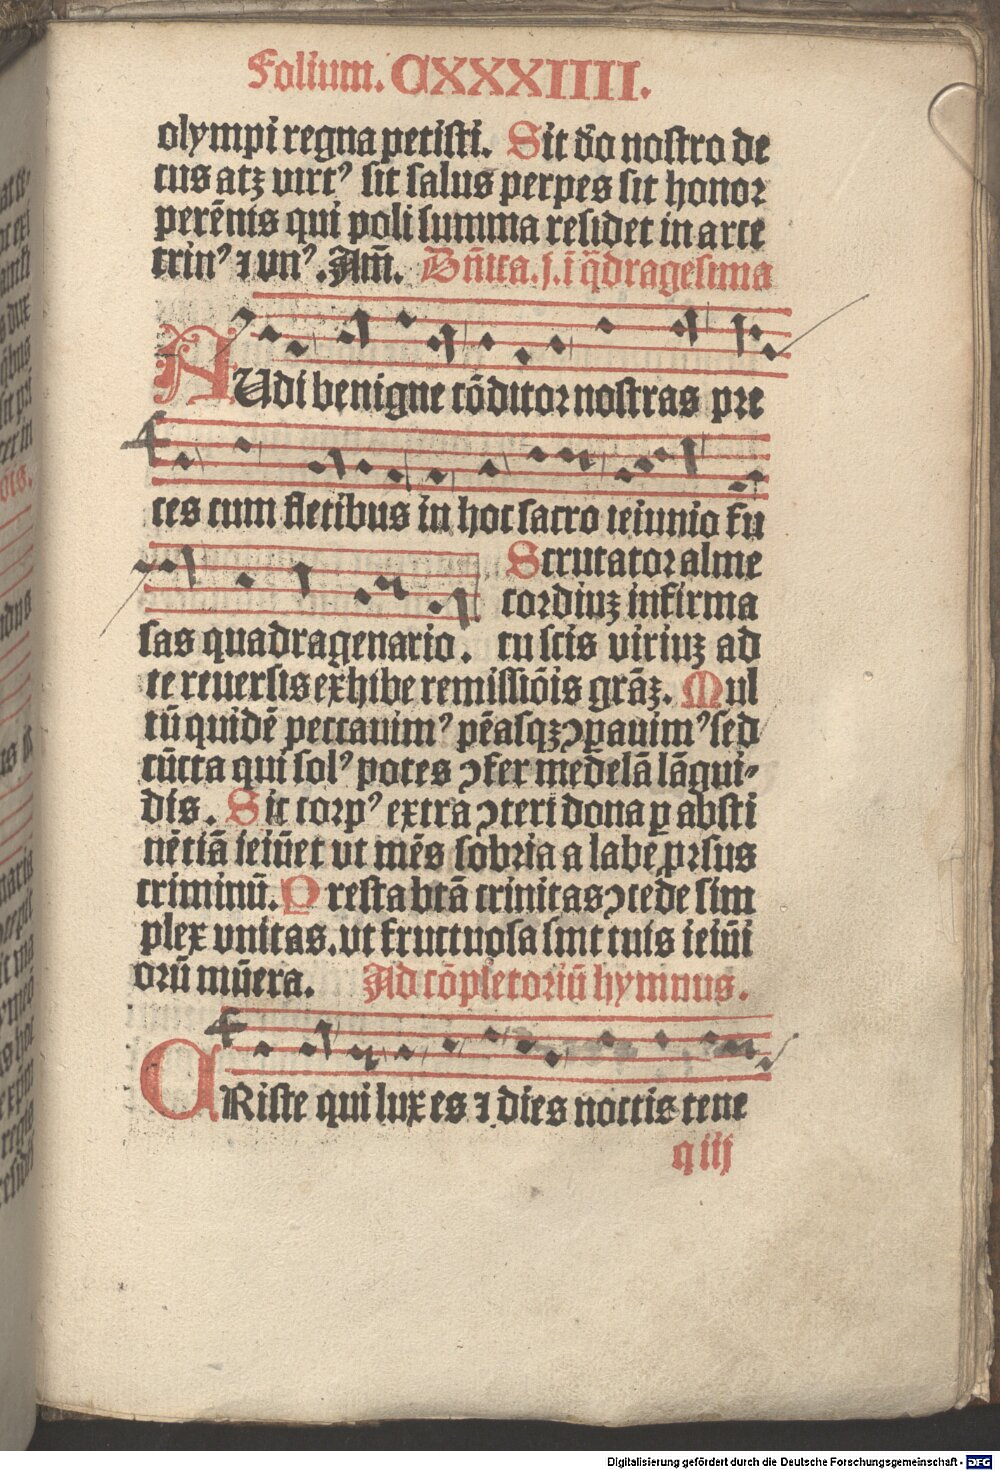 Folium. CXXXIIII.
olympi regna petisti. Sit deo nostro de
cus atqꝫ virtꝰ sit salus perpes sit honor
perēnis qui poli summa residet in arce
trinꝰ ⁊ vnꝰ. Am̄. Dn̄ica. j. ī q̄dragesima
AUdi benigne cōditor nostras pre
ces cum fletibus in hoc sacro ieiunio fu
Scrutator alme
cordiuꝫ infirma
sas quadragenario. tu scis viriuꝫ ad
te reuersis exhibe remissiōis grāꝫ. Mul
tū quidē peccauimꝰ pēasqꝫ ꝯꝑauimꝰ sed
cūcta qui solꝰ potes ꝯfer medelā lāgui⸗
dis. Sic corpꝰ extra ꝯteri dona ꝑ absti
nētiā ieiūet vt mēs sobria a labe prsus
criminū. Presta btā trinitas ꝯcede sim
plex vnitas. vt fructuosa sint tuis ieiūi
orū mūera. Ad cōpletoriū hymnus.
CRiste qui lux es ⁊ dies noctis tene
q iij
Digitalisierung gefördert durch die Deutsche Forschungsgemeinschaft - DFG